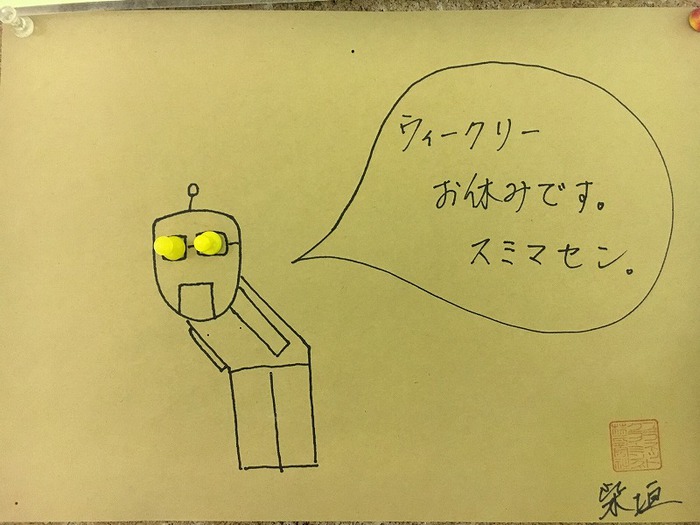 ウィークリー
お休みです。
スミマセン。